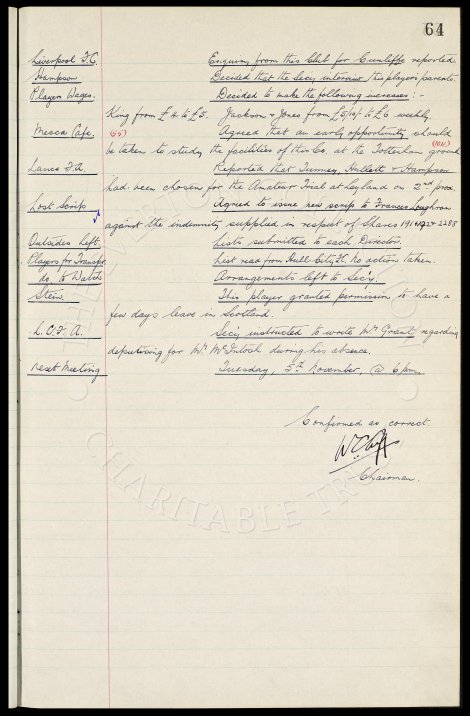 64
Liverpool F.C. Enquiry from this Club for Cunliffe reported.
Hampson Decided that the Secy. interview this player's parents.
Players Wages. Decided to make the following increases:-
King from £4 to £5. Jackson & Jones from £5/10/- to £6 weekly.
Mecca Cafe. (65) Agreed that an early opportunity should
be taken to study the facilities of this Co. at the Tottenham ground
Lancs F.A. Reported that Turney, Hullett & Hampson
had been chosen for the Amateur Trial at Leyland on 2nd prox.
Lost Scrip Agreed to issue new scrip to Frances Loughran
against the indemnity supplied in respect of Shares 2288
Outsides Left Lists submitted to each Director.
Players for Transfer List read from Hull City F.C. No action taken.
do. to Watch Arrangements left to Sec'y.
Stein. This player granted permission to have a
few days leave in Scotland.
L.C.F.A. Secy. instructed to write Mr Grant regarding
deputising for Mr McIntosh during his absence.
Next Meeting Tuesday, 5th November, @ 6 p.m.
Confirmed as correct.
Chairman.
CHARITABLE TRUST